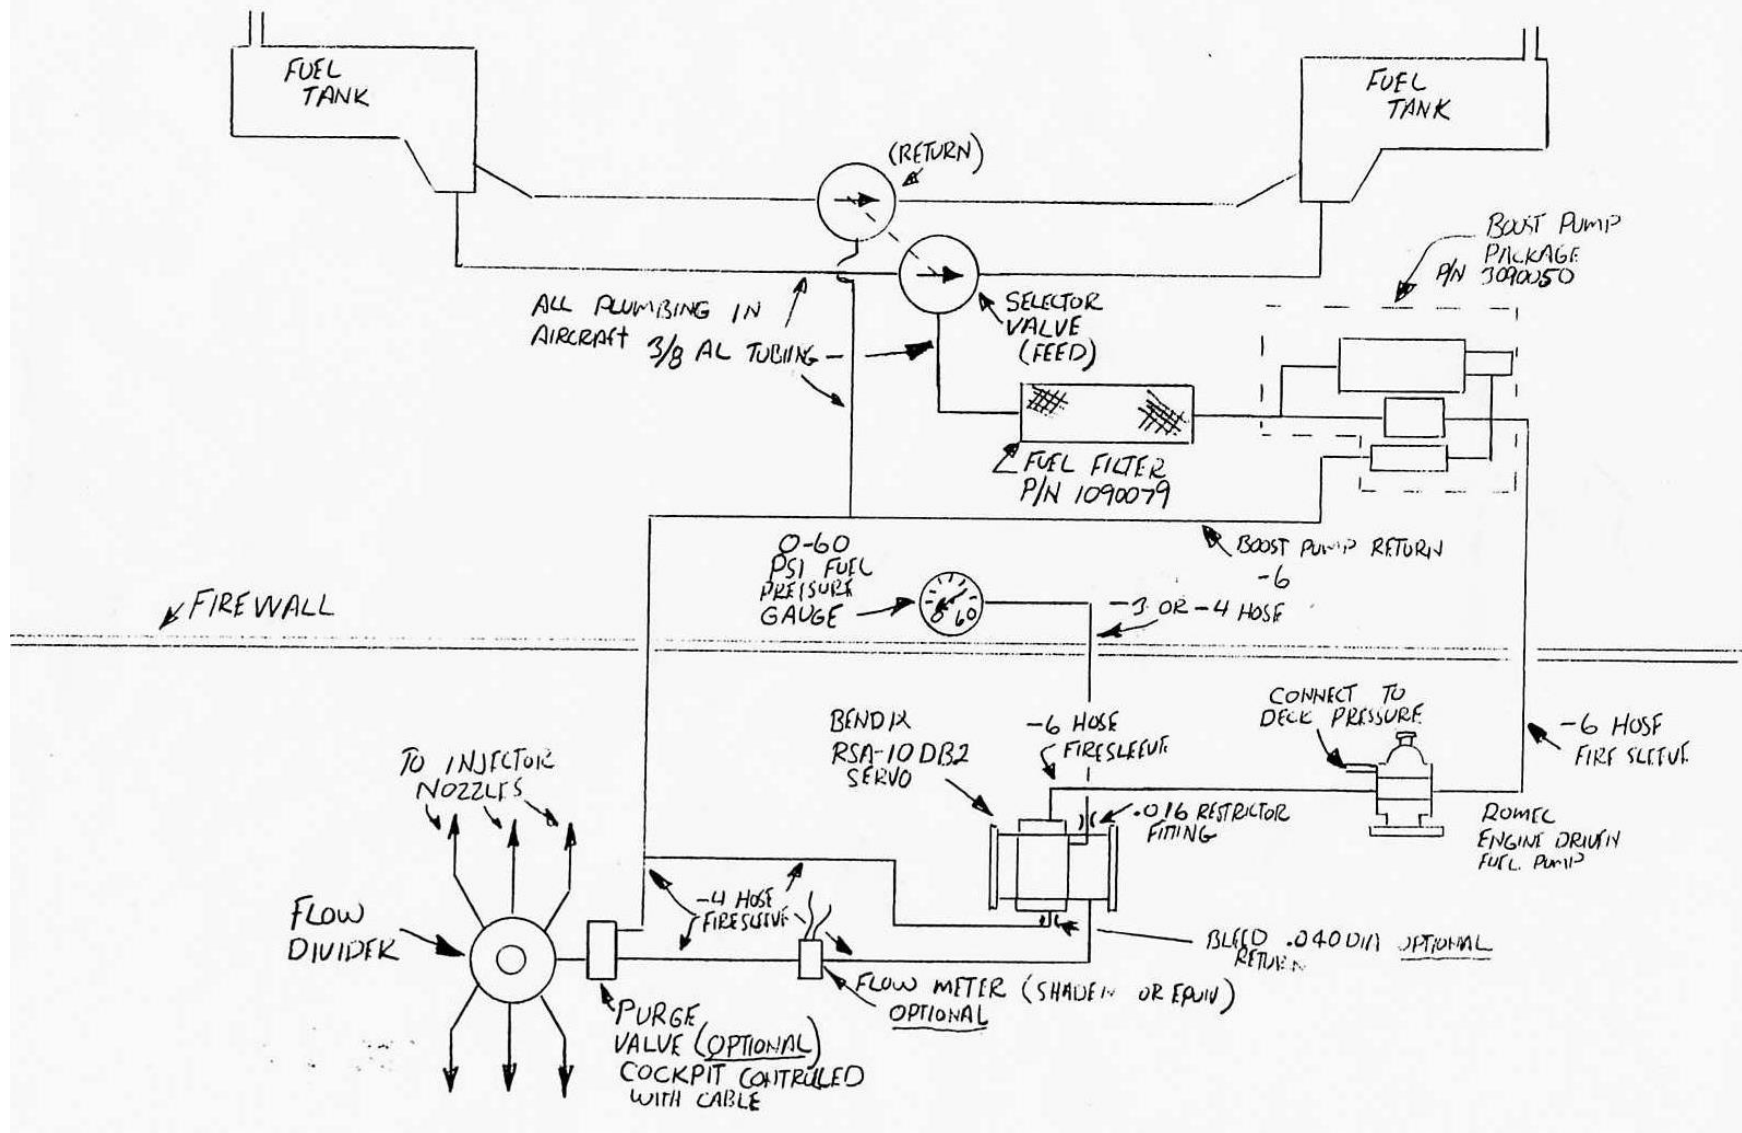 FUEL
TANK
FUEL
TANK
(RETURN)
BOOST PUMP
PACKAGE
P/N 3090050
ALL PLUMBING IN
AIRCRAFT 3/8 AL TUBING
SELECTOR
VALVE
(FEED)
FUEL FILTER
P/N 1090079
BOOST PUMP RETURN
-6
0-60
PSI FUEL
PRESSURE
GAUGE
0 60
-3 OR -4 HOSE
FIREWALL
CONNECT TO
DECK PRESSURE
-6 HOSE
FIRE SLEEVE
BENDIX
RSA-10 DB2
SERVO
-6 HOSE
FIRESLEEVE
TO INJECTOR
NOZZLES
.016 RESTRICTOR
FITTING
ROMEC
ENGINE DRIVEN
FUEL PUMP
-4 HOSE
FIRESLEEVE
FLOW
DIVIDER
BLEED .040 DIA OPTIONAL
RETURN
FLOW METER (SHADEIN OR EQUIV)
OPTIONAL
PURGE
VALVE (OPTIONAL)
COCKPIT CONTROLED
WITH CABLE